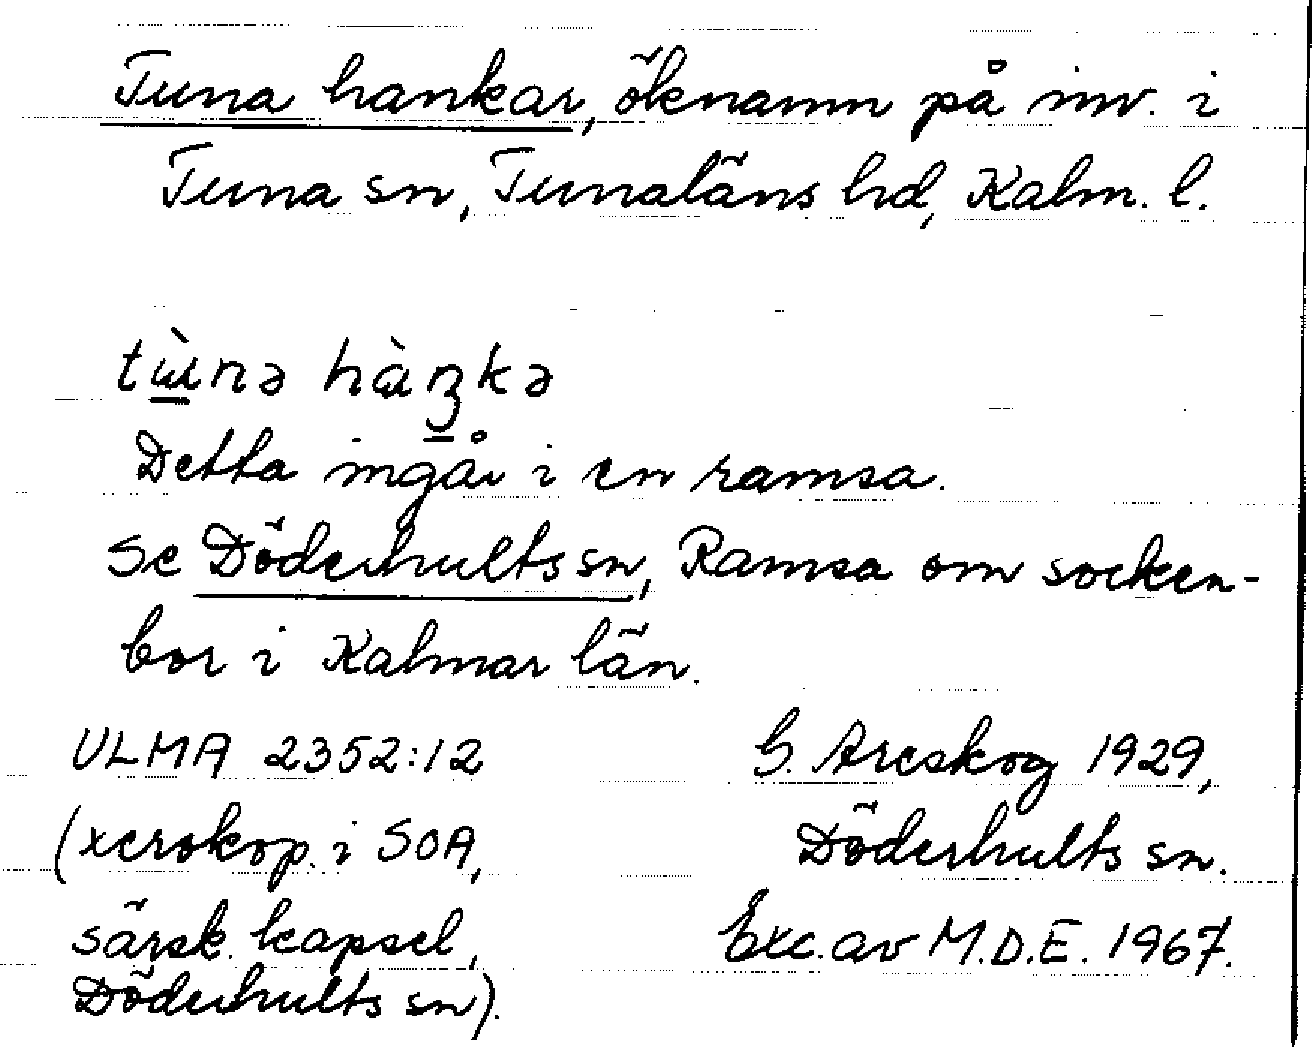 Tuna hankar, öknamn på inv. i
Tuna sn, Tunaläns hd, Kalm. l.
tɯ̀nə hàŋkə
Detta ingår i en ramsa.
Se Döderhults sn, Ramsa om socken-
bor i Kalmar län.
ULMA 2352:12
(xerokop. i SOA,
särsk. kapsel,
Döderhults sn).
G. Areskog 1929,
Döderhults sn.
Exc. av M.D.E. 1967.